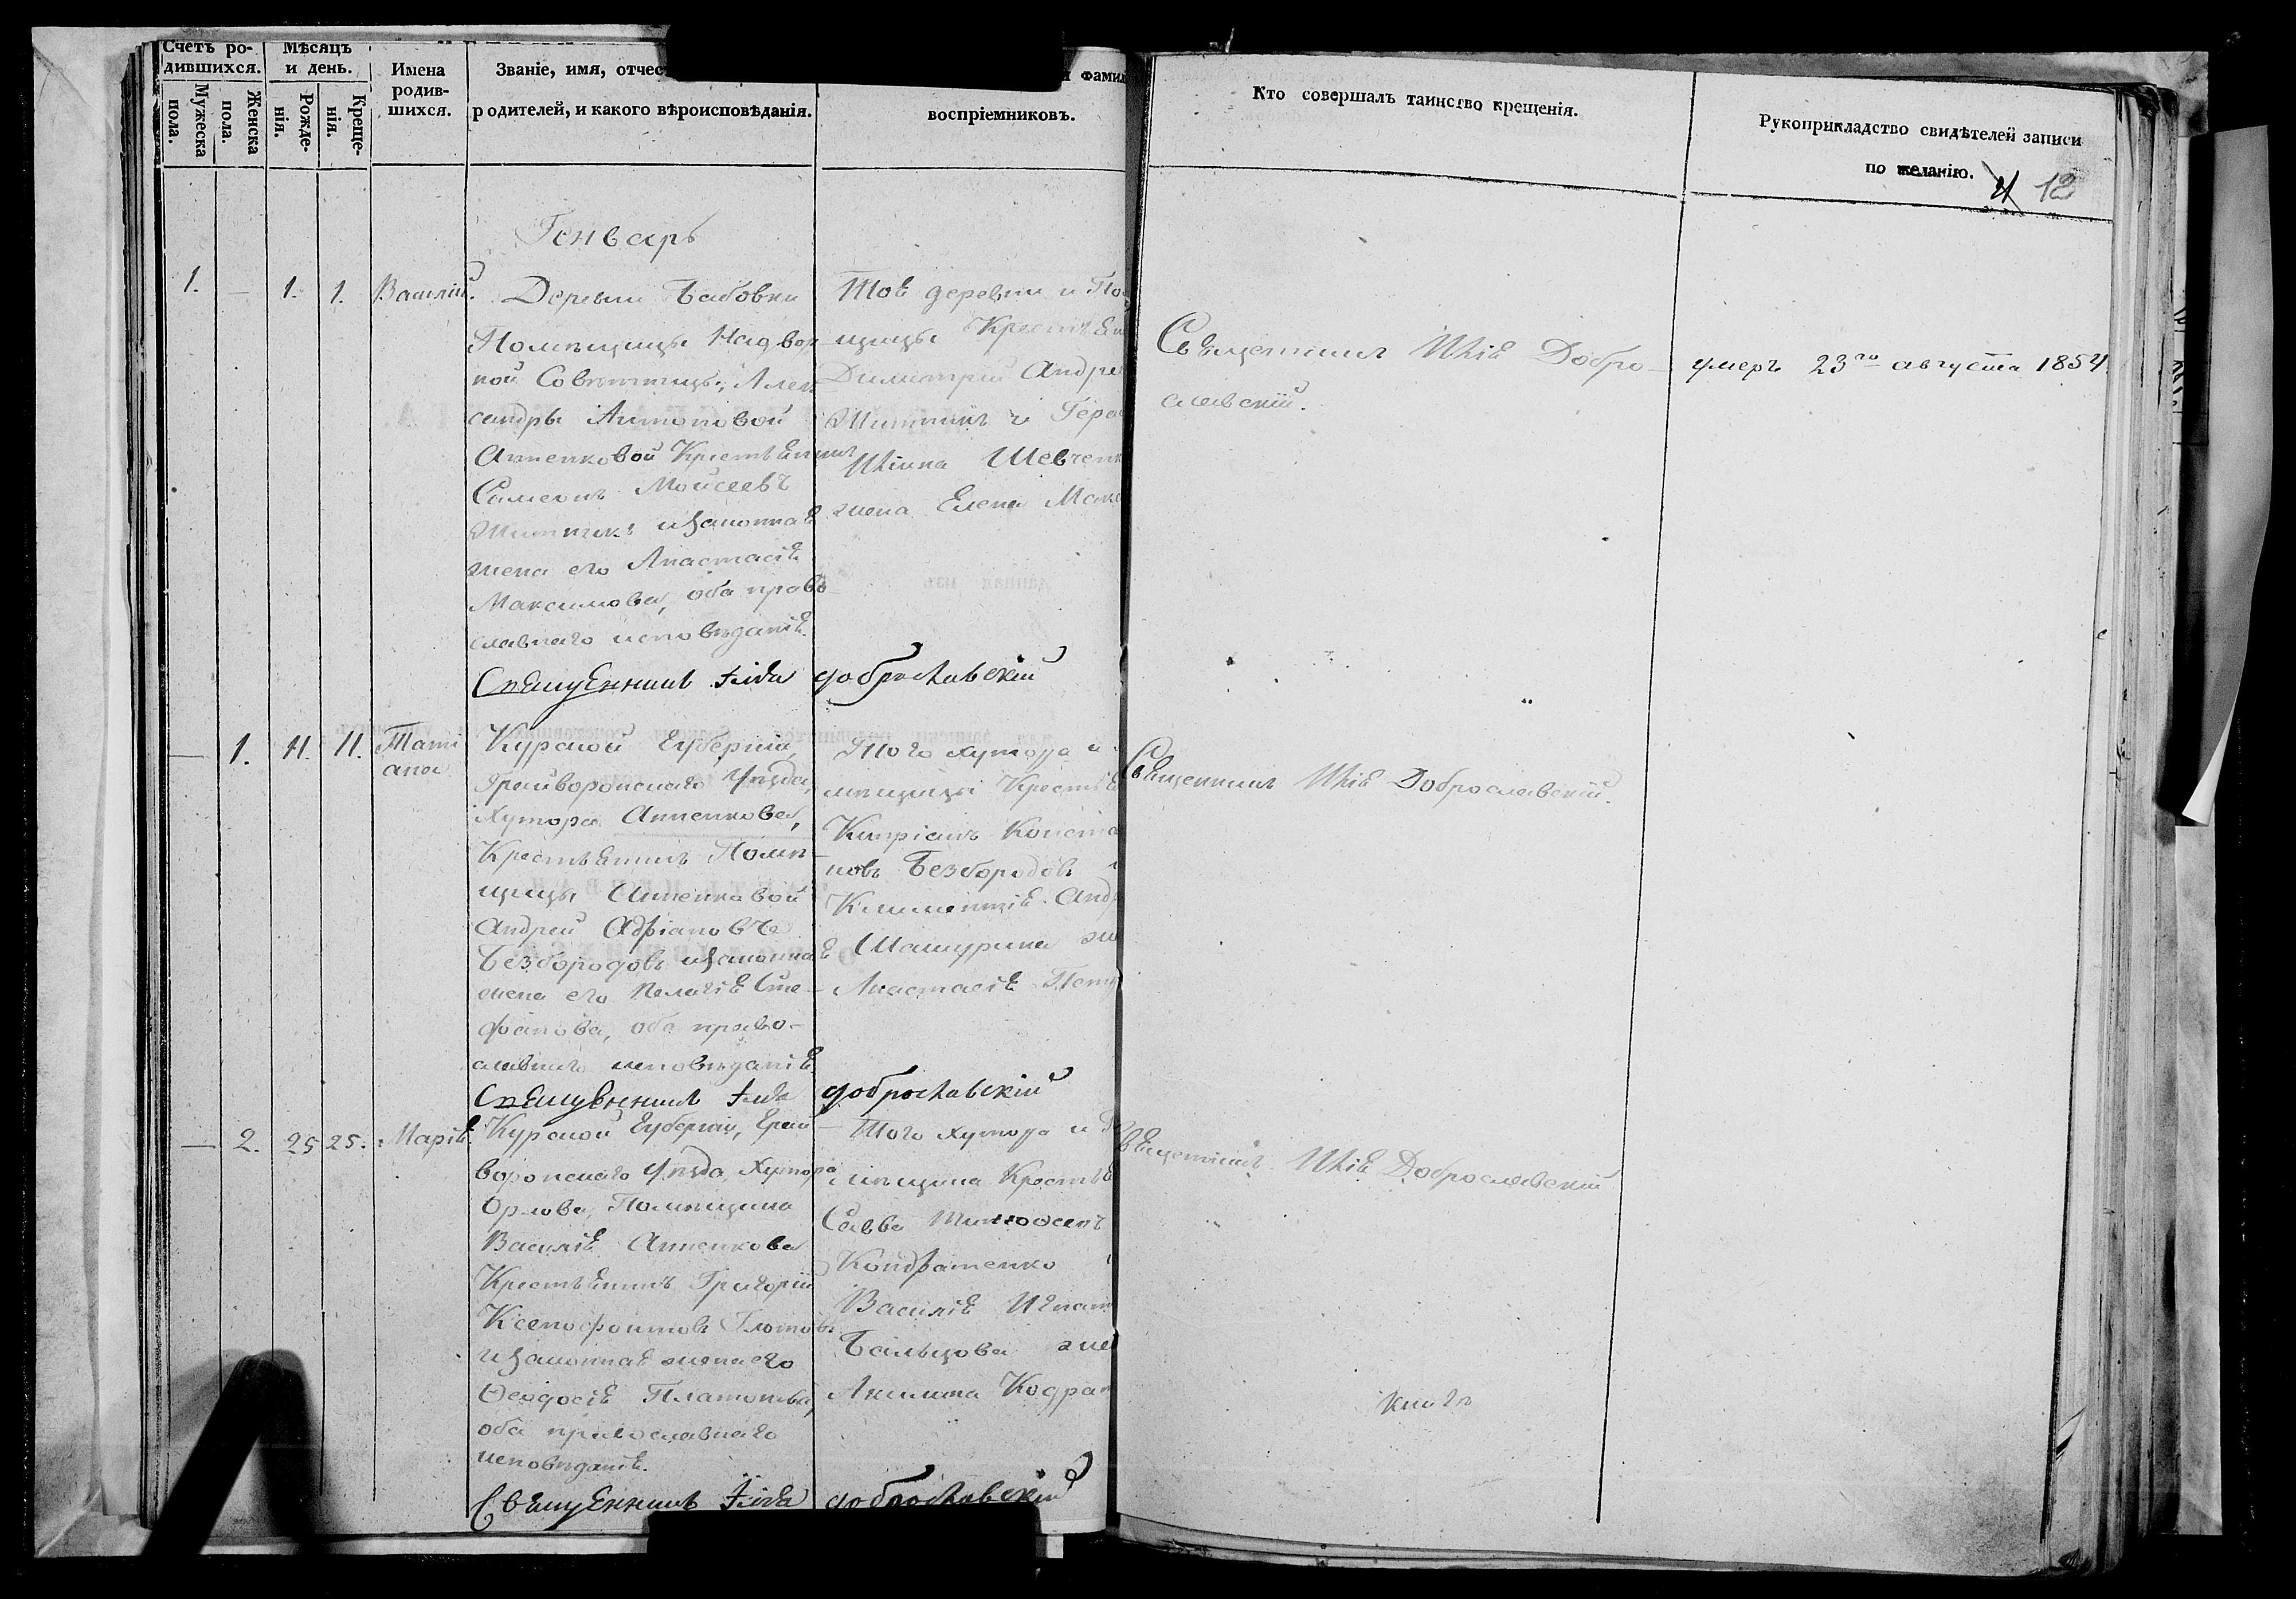 Счетъ ро-
дившихся.
Мужеска
пола.
Женска
пола.
Мѣсяцъ
и день.
Рожде-
нія.
Креще-
нія.
Имена
родив-
шихся.
Званіе, имя, отчес
родителей, и какого вѣроисповѣданія.
фами
воспріемниковъ.
Кто совершалъ таинство крещенія.
Рукоприкладство свидѣтелей записи
по желанію.
12
Генварь
1. — 1. 1. Василій.
Деревни Бабовки
Помѣщицы Надвор
ной Совѣтницы, Алек
сандры Антоновой
Анненковой Крестьянинъ
Симеонъ Моисеевъ
и законная
жена его Анастасія
Максимова, оба право
славнаго исповѣданія.
Той деревни и По
щицы Крестьян
Димитрій Андре
и Гера
Шевченк
жена Елена Мак
Священникъ Илія Добро-
славскій.
умеръ 23го августа 1854
Священникъ Илія Доброславскій
— 1. 11. 11. Тати
ана
Курской Губерніи,
Грайворонскаго Уѣзда,
Хутора Анненкова,
Крестьянинъ Помѣ
щицы Анненковой
Андрей Адріановъ
Безбородовъ и законная
жена его Пелагія Сте-
фанова, оба право-
славнаго исповѣданія
Того хутора и
мѣщицы Крестья
Кипріанъ Конста
новъ Безбородовъ
Климентія Анд
Шашурина же
Анастасія Пет
Священникъ Илія Доброславскій.
Священникъ Илія Доброславскій
— 2. 25 25. Марія.
Курской Губерніи, Грай
воронскаго Уѣзда, Хутора
Орлова, Помѣщика
Василія Анненкова
Крестьянинъ Григорій
Ксенофонтовъ Глотовъ
и законная жена его
Ѳеодосія Платонова,
оба православнаго
исповѣданія.
Того хутора и По
мѣщика Крестья
Савва
Кондратенко
Василія Игнат
Бальцова же
Акилина Кодрат
вященникъ Илія Доброславскій
книгѣ
Священникъ Илія Доброславскій